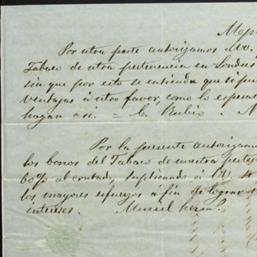 Por otra parte autorizamos
Tabaco de otra pertenencia en Londres
sin que por esto se entienda que si pue
ventajas á otros favor, como lo espera
hagan asi. = C. Rubio
Por la presente autorizam
los bonos del Tabaco de nuestra perte
60% al contado, suplicando á
los mayores esfuerzos á fin de lograr
intereses.